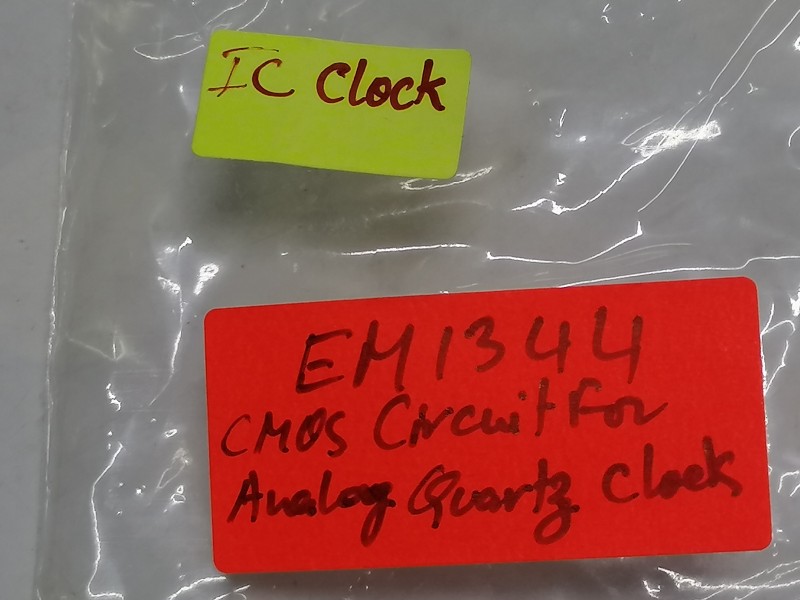 IC Clock
EM1344
CMOS Circuit For
Analog Quartz Clock